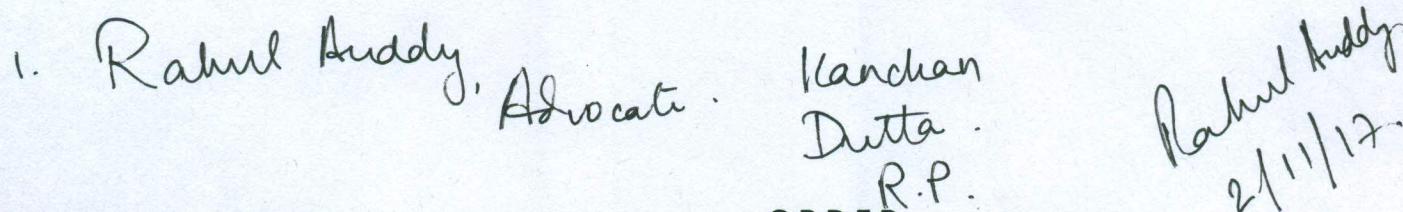 1. Rahul Auddy, Advocate.
Kanchan
Dutta.
R.P.
Rahul Auddy
2/11/17.
ORDER